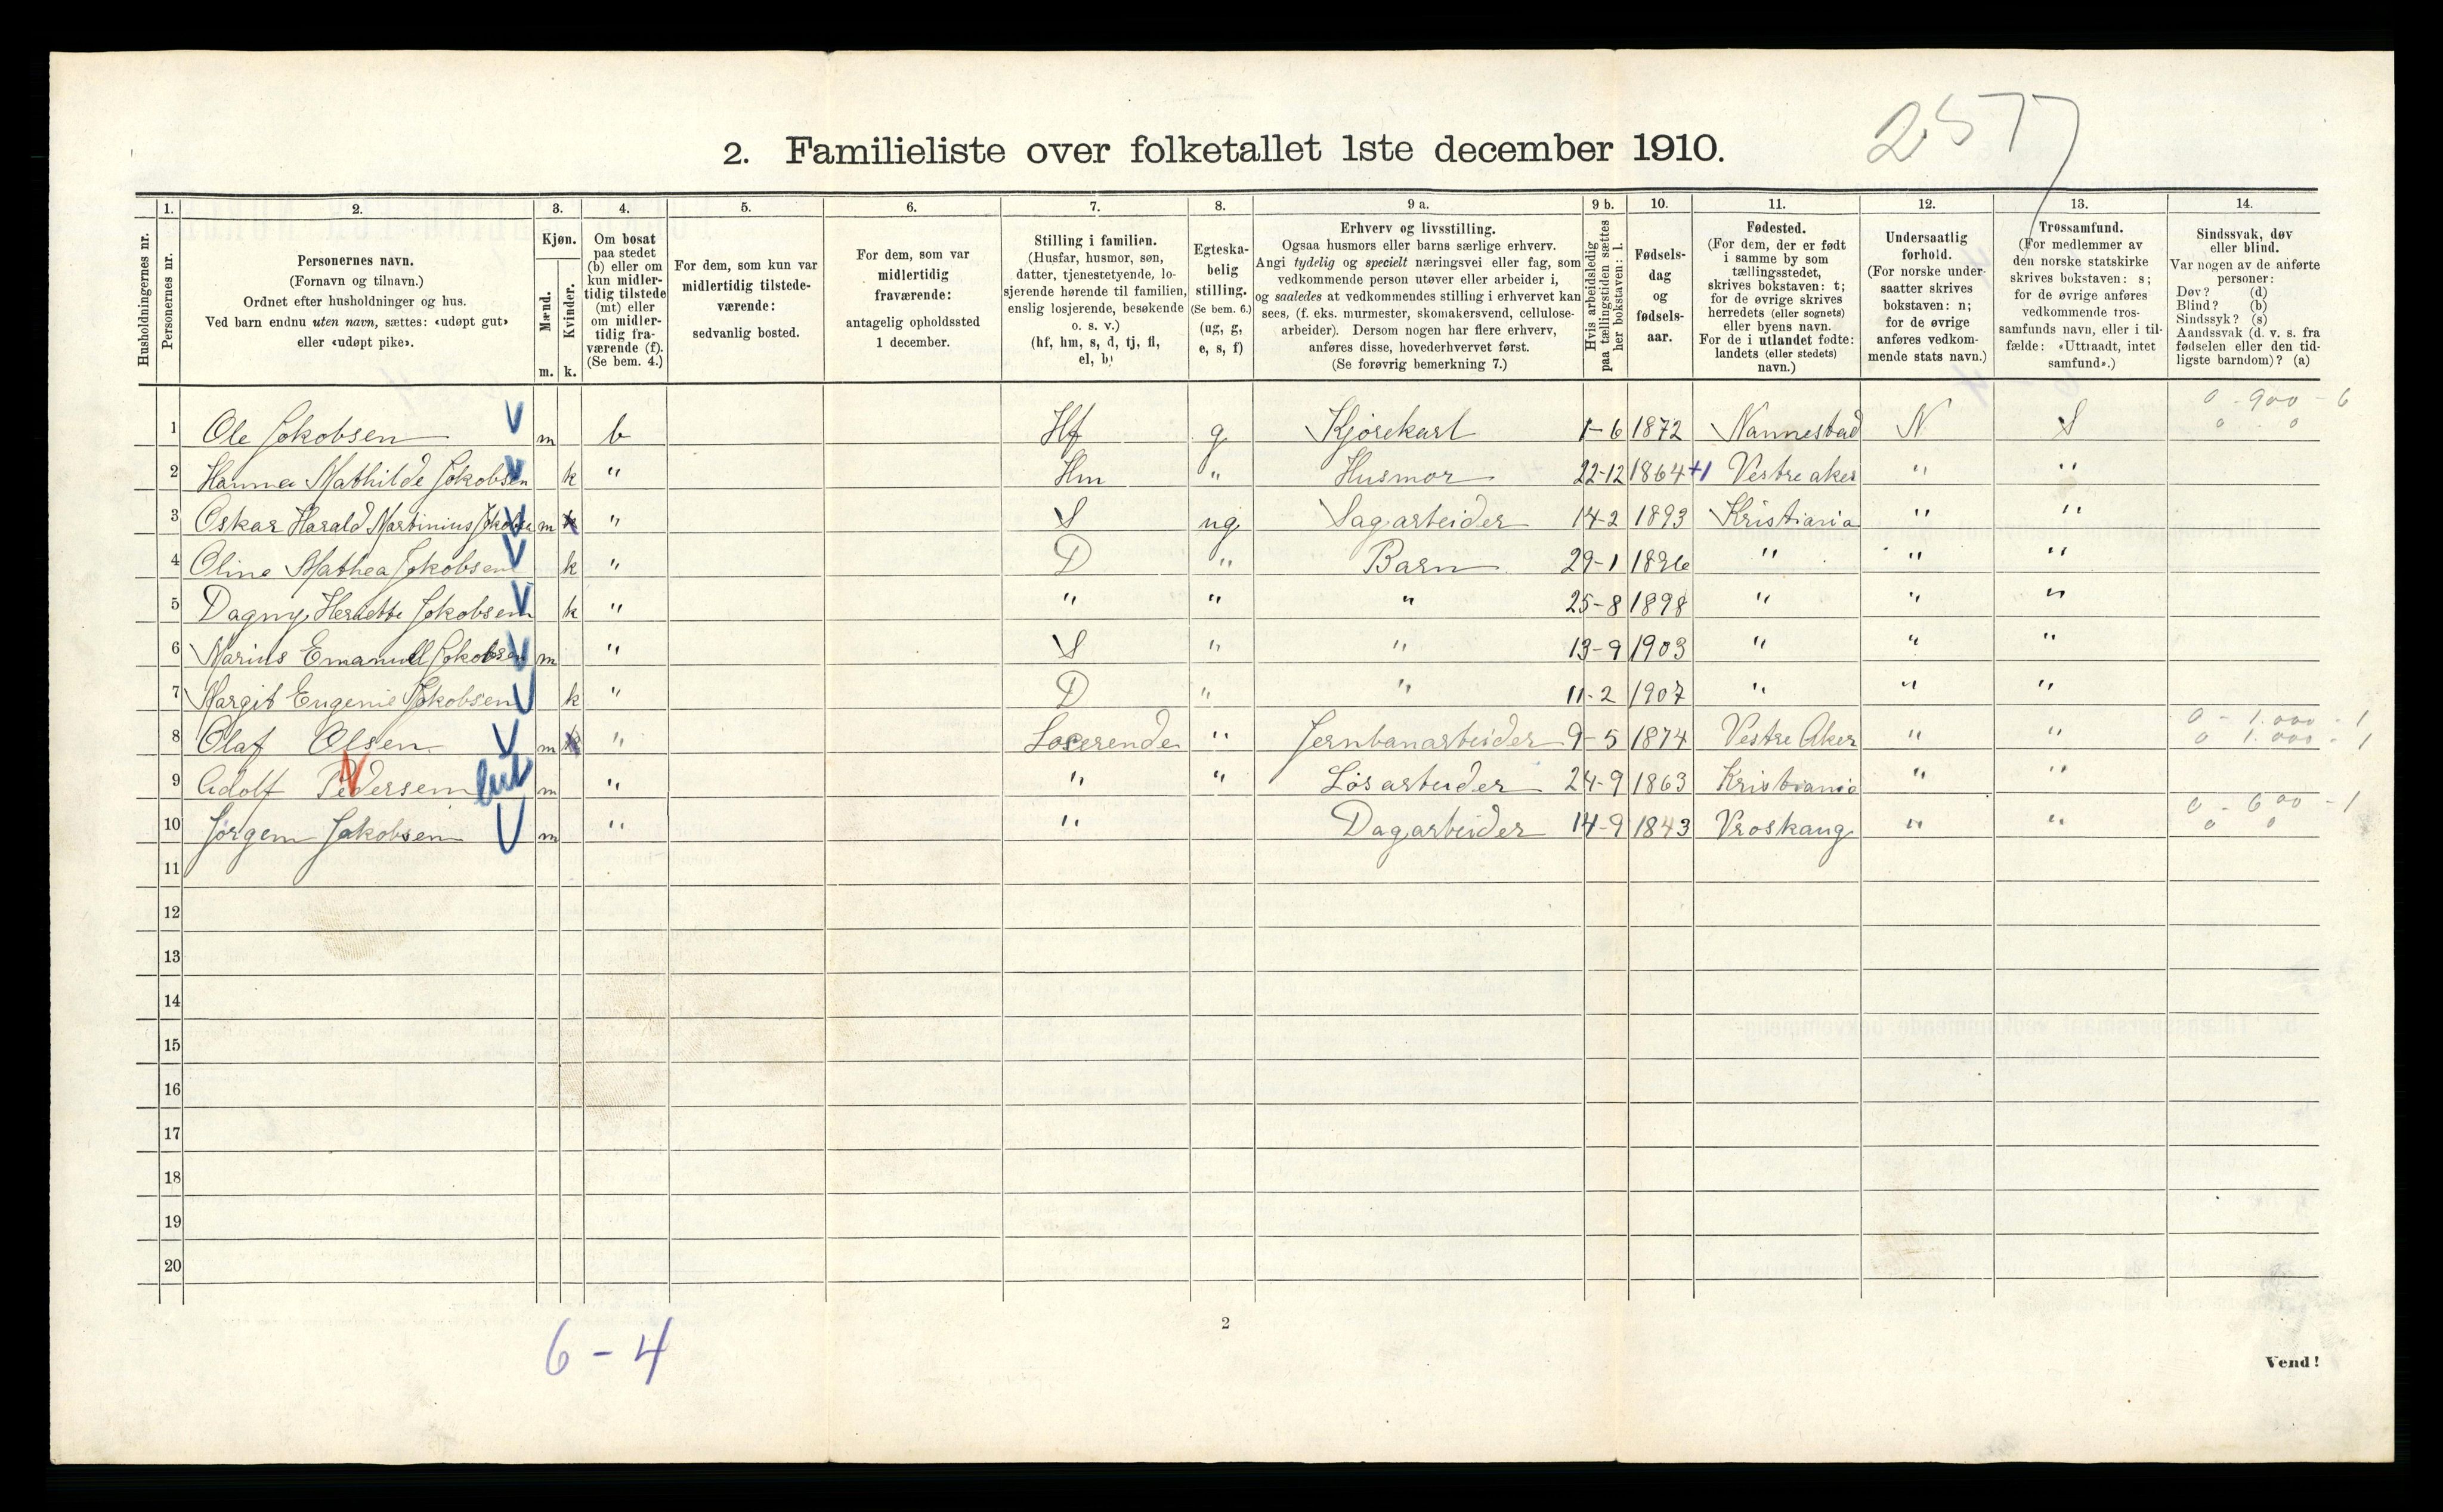 2577
2. Familieliste over folketallet 1ste december 1910.
Husholdningernes nr.
1. Personernes nr.
2. Personernes navn.
(Fornavn og tilnavn.)
Ordnet efter husholdninger og hus.
Ved barn endnu uten navn, sættes: «udøpt gut»
eller «udøpt pike».
3. Kjøn.
Mænd. m.
Kvinder. k.
4. Om bosat
paa stedet
(b) eller om
kun midler-
tidig tilstede
(mt) eller
om midler-
tidig fra-
værende (f).
(Se bem. 4.)
5. For dem, som kun var
midlertidig tilstede-
værende:
sedvanlig bosted.
6. For dem, som var
midlertidig
fraværende:
antagelig opholdssted
1 december.
7. Stilling i familien.
(Husfar, husmor, søn,
datter, tjenestetyende, lo-
sjerende hørende til familien,
enslig losjerende, besøkende
o. s. v.)
(hf, hm, s, d, tj, fl,
el, b)
8. Egteska-
belig
stilling.
(Se bem. 6.)
(ug, g,
e, s, f)
9 a. Erhverv og livsstilling.
Ogsaa husmors eller barns særlige erhverv.
Angi tydelig og specielt næringsvei eller fag, som
vedkommende person utøver eller arbeider i,
og saaledes at vedkommendes stilling i erhvervet kan
sees, (f. eks. murmester, skomakersvend, cellulose-
arbeider). Dersom nogen har flere erhverv,
anføres disse, hovederhvervet først.
(Se forøvrig bemerkning 7.)
9 b. Hvis arbeidsledig
paa tællingstiden sættes
her bokstaven: l.
10. Fødsels-
dag
og
fødsels-
aar.
11. Fødested.
(For dem, der er født
i samme by som
tællingsstedet,
skrives bokstaven: t;
for de øvrige skrives
herredets (eller sognets)
eller byens navn.
For de i utlandet fødte:
landets (eller stedets)
navn.)
12. Undersaatlig
forhold.
(For norske under-
saatter skrives
bokstaven: n;
for de øvrige
anføres vedkom-
mende stats navn.)
13. Trossamfund.
(For medlemmer av
den norske statskirke
skrives bokstaven: s;
for de øvrige anføres
vedkommende tros-
samfunds navn, eller i til-
fælde: «Uttraadt, intet
samfund».)
14. Sindssvak, døv
eller blind.
Var nogen av de anførte
personer:
Døv? (d)
Blind? (b)
Sindssyk? (s)
Aandssvak (d. v. s. fra
fødselen eller den tid-
ligste barndom)? (a)
1 Ole Jokobsen V m b Hf g Kjørekarl 1-6 1872 Nannestad N S 0 - 900 - 6
0 0
2 Hanna Mathilde Jokobsen V k " Hm " Husmor 22-12 1864 +1 Vestre aker " "
3 Oskar Harald Martinius Jokobsen V m k " S ug Sagarbeider 14-2 1893 Kristiania " "
4 Oline Mathea Jokobsen V k " D " Barn 29-1 1896 " " "
5 Dagny Henriette Jokobsen V k " " " " 25-8 1898 " " "
6 Marius Emanuell Jokobsen V m " S " " 13-9 1903 " " "
7 Margit Eugenie Jokobsen V k " D " " 11-2 1907 " " "
8 Olaf Olsen V m k " Loserende " Jernbanarbeider 9-5 1874 Vestre Aker " " 0 - 1.000 - 1
0 1.000 - 1
9 Adolf Pedersen V m " " " Løsarbeider 24-9 1863 Kristiania " "
10 Jørgen Jakobsen V m " " Dagarbeider 14-9 1843 Vroskaug " " 0 - 600 - 1
0 0
11
12
13
14
15
16
17
18
19
20
6-4
2
Vend!